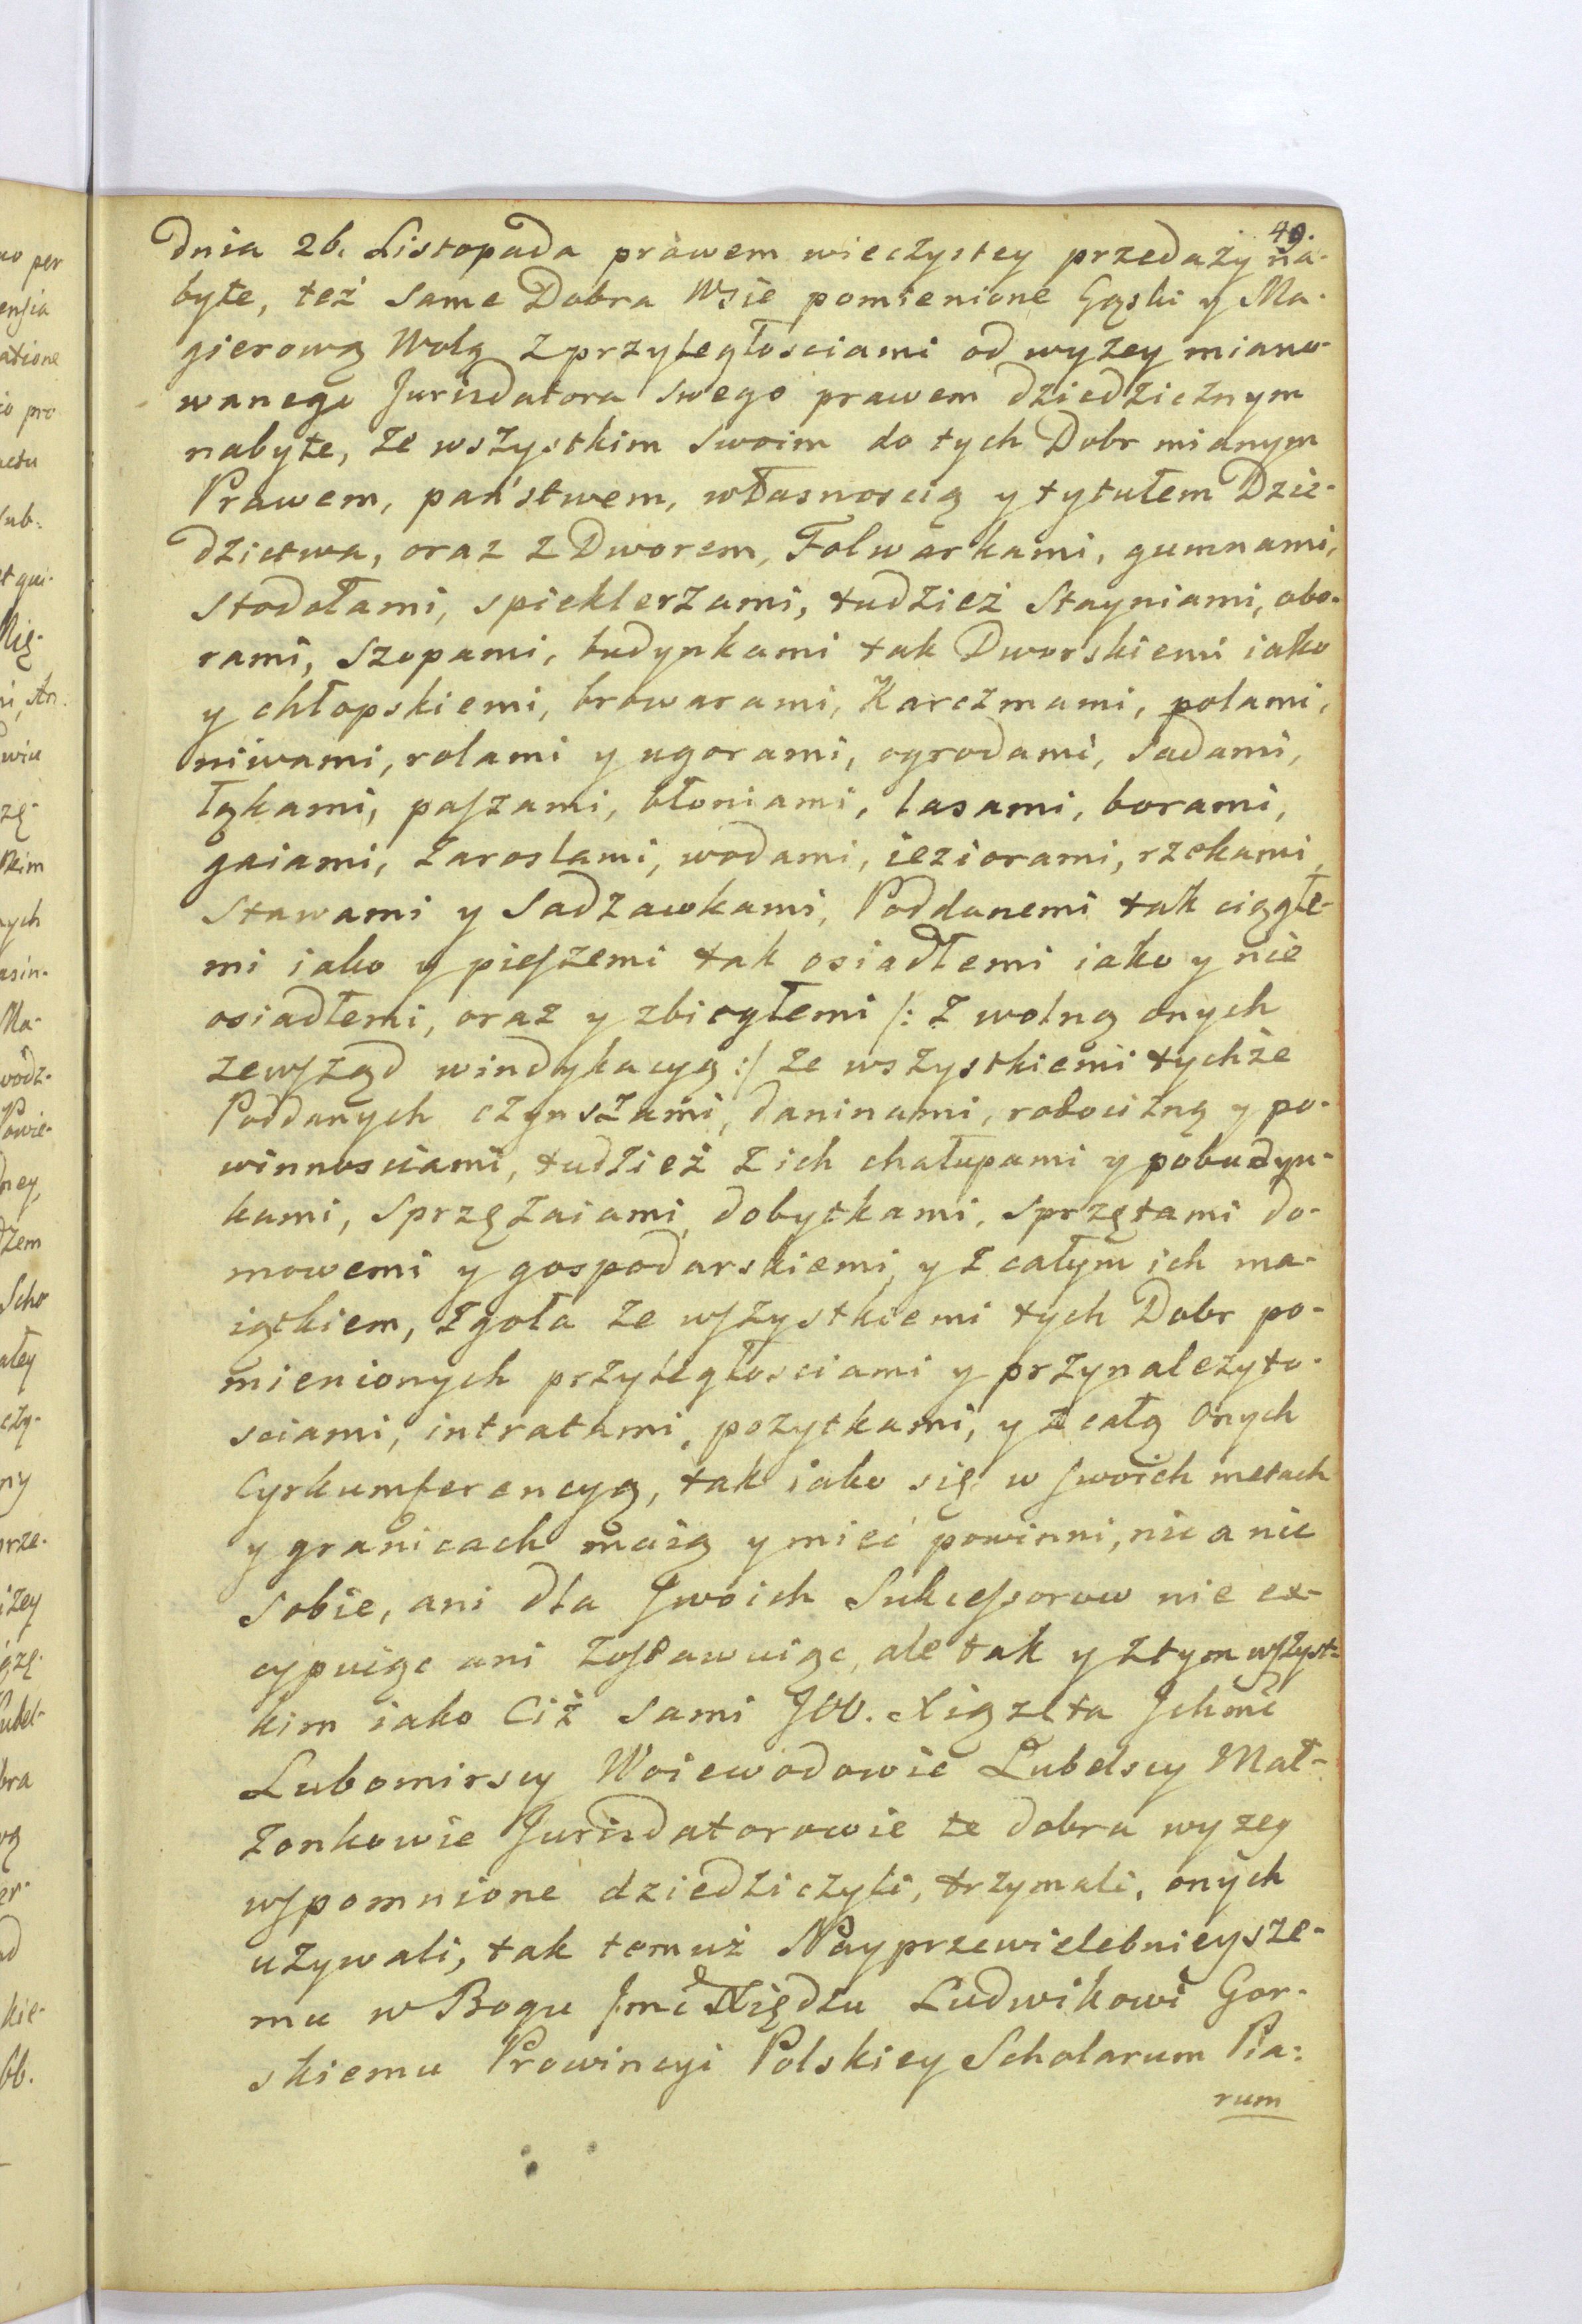 49.
dnia 26. Listopada prawem wieczystey przedaży na-
byte, też same Dobra Wsie pomienione Gąski y Ma-
gierową Wolą z przyległosciami od wyzey miano-
wanego Jurisdatora swego prawem dziedzicznym
nabyte, ze wszystkim swoim do tych Dobr mianym
Prawem, państwem, własnoscią y tytułem Dzie-
dzictwa, oraz z Dworem, Folwarkami, gumnami,
stodołami, spieklerzami, tudzież Stayniami, obo-
rami, szopami, budynkami tak Dworskiemi iako
y chłopskiemi, browarami, Karczmami, polami,
niwami, rolami y ugorami, ogrodami, sadami,
łąkami, paszami, błoniami, lasami, borami,
gaiami, zaroslami, wodami, ieziorami, rzekami,
stawami y sadzawkami, Poddanemi tak ciągłe-
mi iako y pieszemi tak osiadłemi iako y nie
osiadłemi, oraz y zbiegłemi /: z wolną onych
zewsząd windykacyą :/ ze wszystkiemi tychże
Poddanych czynszami, daninami, robocizną y po-
winnosciami, tudzież z ich chałupami y pobudyn-
kami, sprzężaiami, dobytkami, sprzętami do-
mowemi y gospodarskiemi, y z całym ich ma-
iątkiem, zgoła ze wszystkiemi tych Dobr po-
mienionych przyległosciami y przynalezyto-
sciami, intratami, pozytkami, y z całą Onych
Cyrkumferencyą, tak iako się w swoich metach
y granicach maią y mieć powinni, nic a nic
sobie, ani dla swoich Sukcessorow nie ex-
cypuiąc ani zostawuiąc, ale tak y z tym wszyst-
kim iako Ciż sami JOO. Xiązęta Jchmć
Lubomirscy Woiewodowie Lubelscy Mał-
zonkowie Jurisdatorowie te dobra wyzey
wspomnione dziedziczyli, trzymali, onych
uzywali, tak temuż Nayprzewielebnieysze-
mu w Bogu Jmć Xiędzu Ludwikowi Gor-
skiemu Prowincyi Polskiey Scholarum Pia-
rum